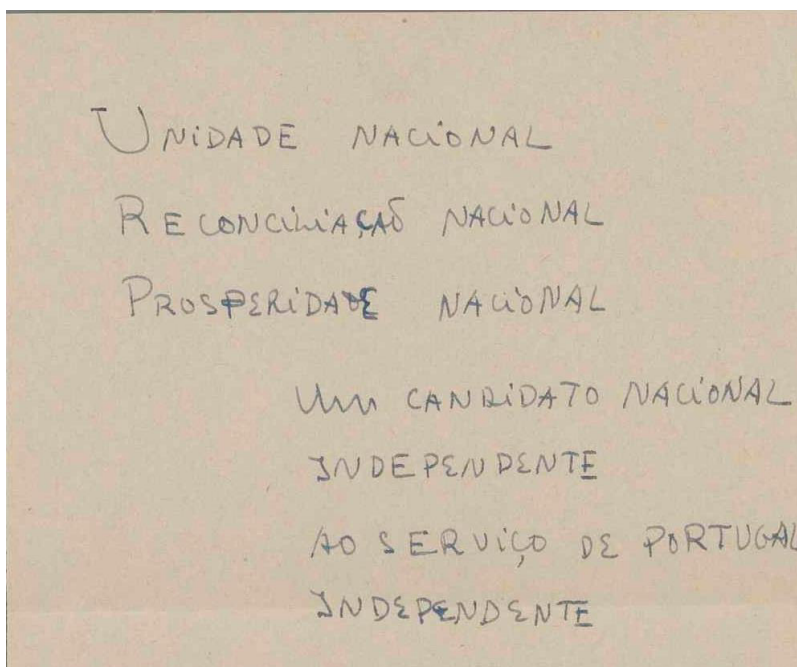 UNIDADE NACIONAL
RECONCILIAÇÃO NACIONAL
PROSPERIDADE NACIONAL
UM CANDIDATO NACIONAL
INDEPENDENTE
AO SERVIÇO DE PORTUGAL
INDEPENDENTE